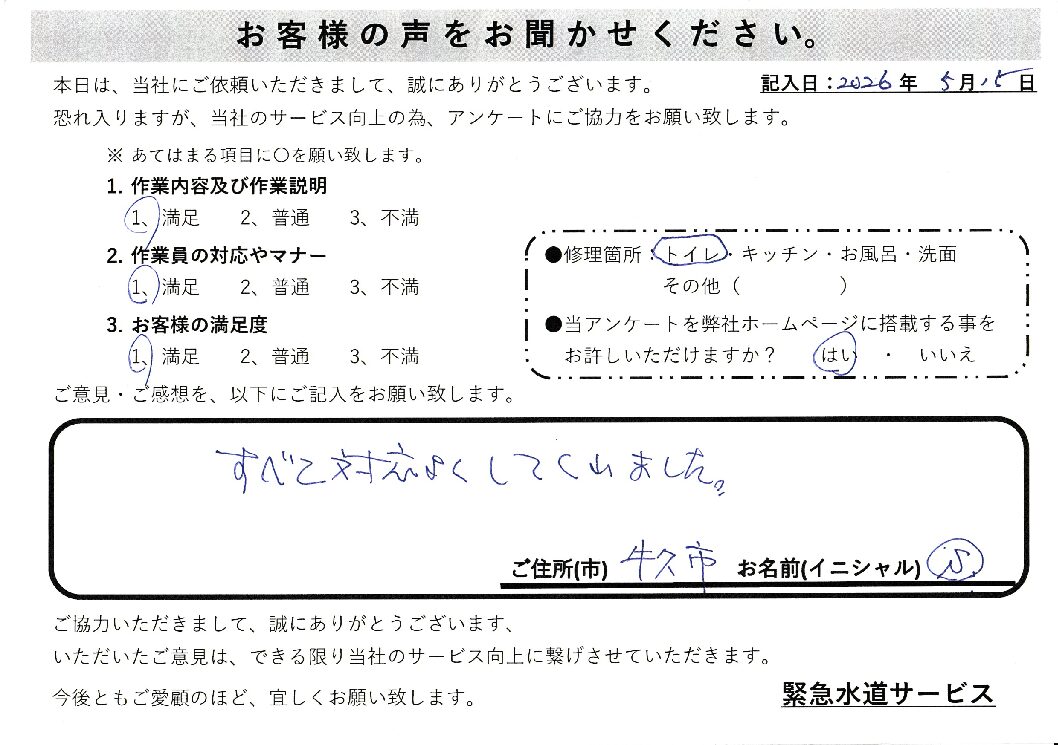 お客様の声をお聞かせください。
本日は、当社にご依頼いただきまして、誠にありがとうございます。 記入日：2026年 5月15日
恐れ入りますが、当社のサービス向上の為、アンケートにご協力をお願い致します。
※ あてはまる項目に〇を願い致します。
1. 作業内容及び作業説明
1、満足 2、普通 3、不満
2. 作業員の対応やマナー
1、満足 2、普通 3、不満
3. お客様の満足度
1、満足 2、普通 3、不満
●修理箇所：トイレ・キッチン・お風呂・洗面
その他（ ）
●当アンケートを弊社ホームページに搭載する事を
お許しいただけますか？ はい ・ いいえ
ご意見・ご感想を、以下にご記入をお願い致します。
すべて対応よくしてくれました。
ご住所(市) 牛久市 お名前(イニシャル)
ご協力いただきまして、誠にありがとうございます、
いただいたご意見は、できる限り当社のサービス向上に繋げさせていただきます。
今後ともご愛顧のほど、宜しくお願い致します。
緊急水道サービス